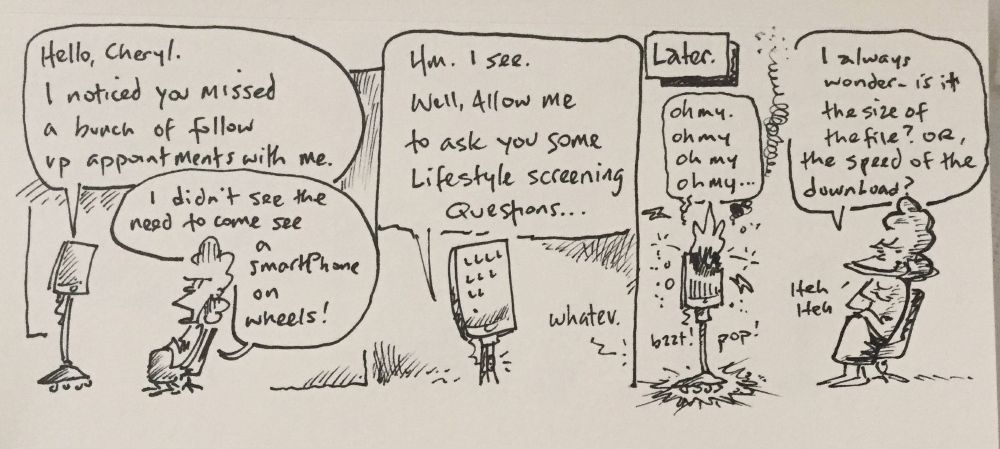 Hello, Cheryl.
I noticed you missed
a bunch of follow
up appointments with me.
I didn't see the
need to come see
a
smartPhone
on
wheels!
Hm. I see.
Well, Allow me
to ask you some
Lifestyle screening
Questions...
whatev.
Later.
oh my.
oh my
oh my
oh my...
bzzt!
pop!
I always
wonder- is it
the size of
the file? OR,
the speed of the
download?
Heh
Heh